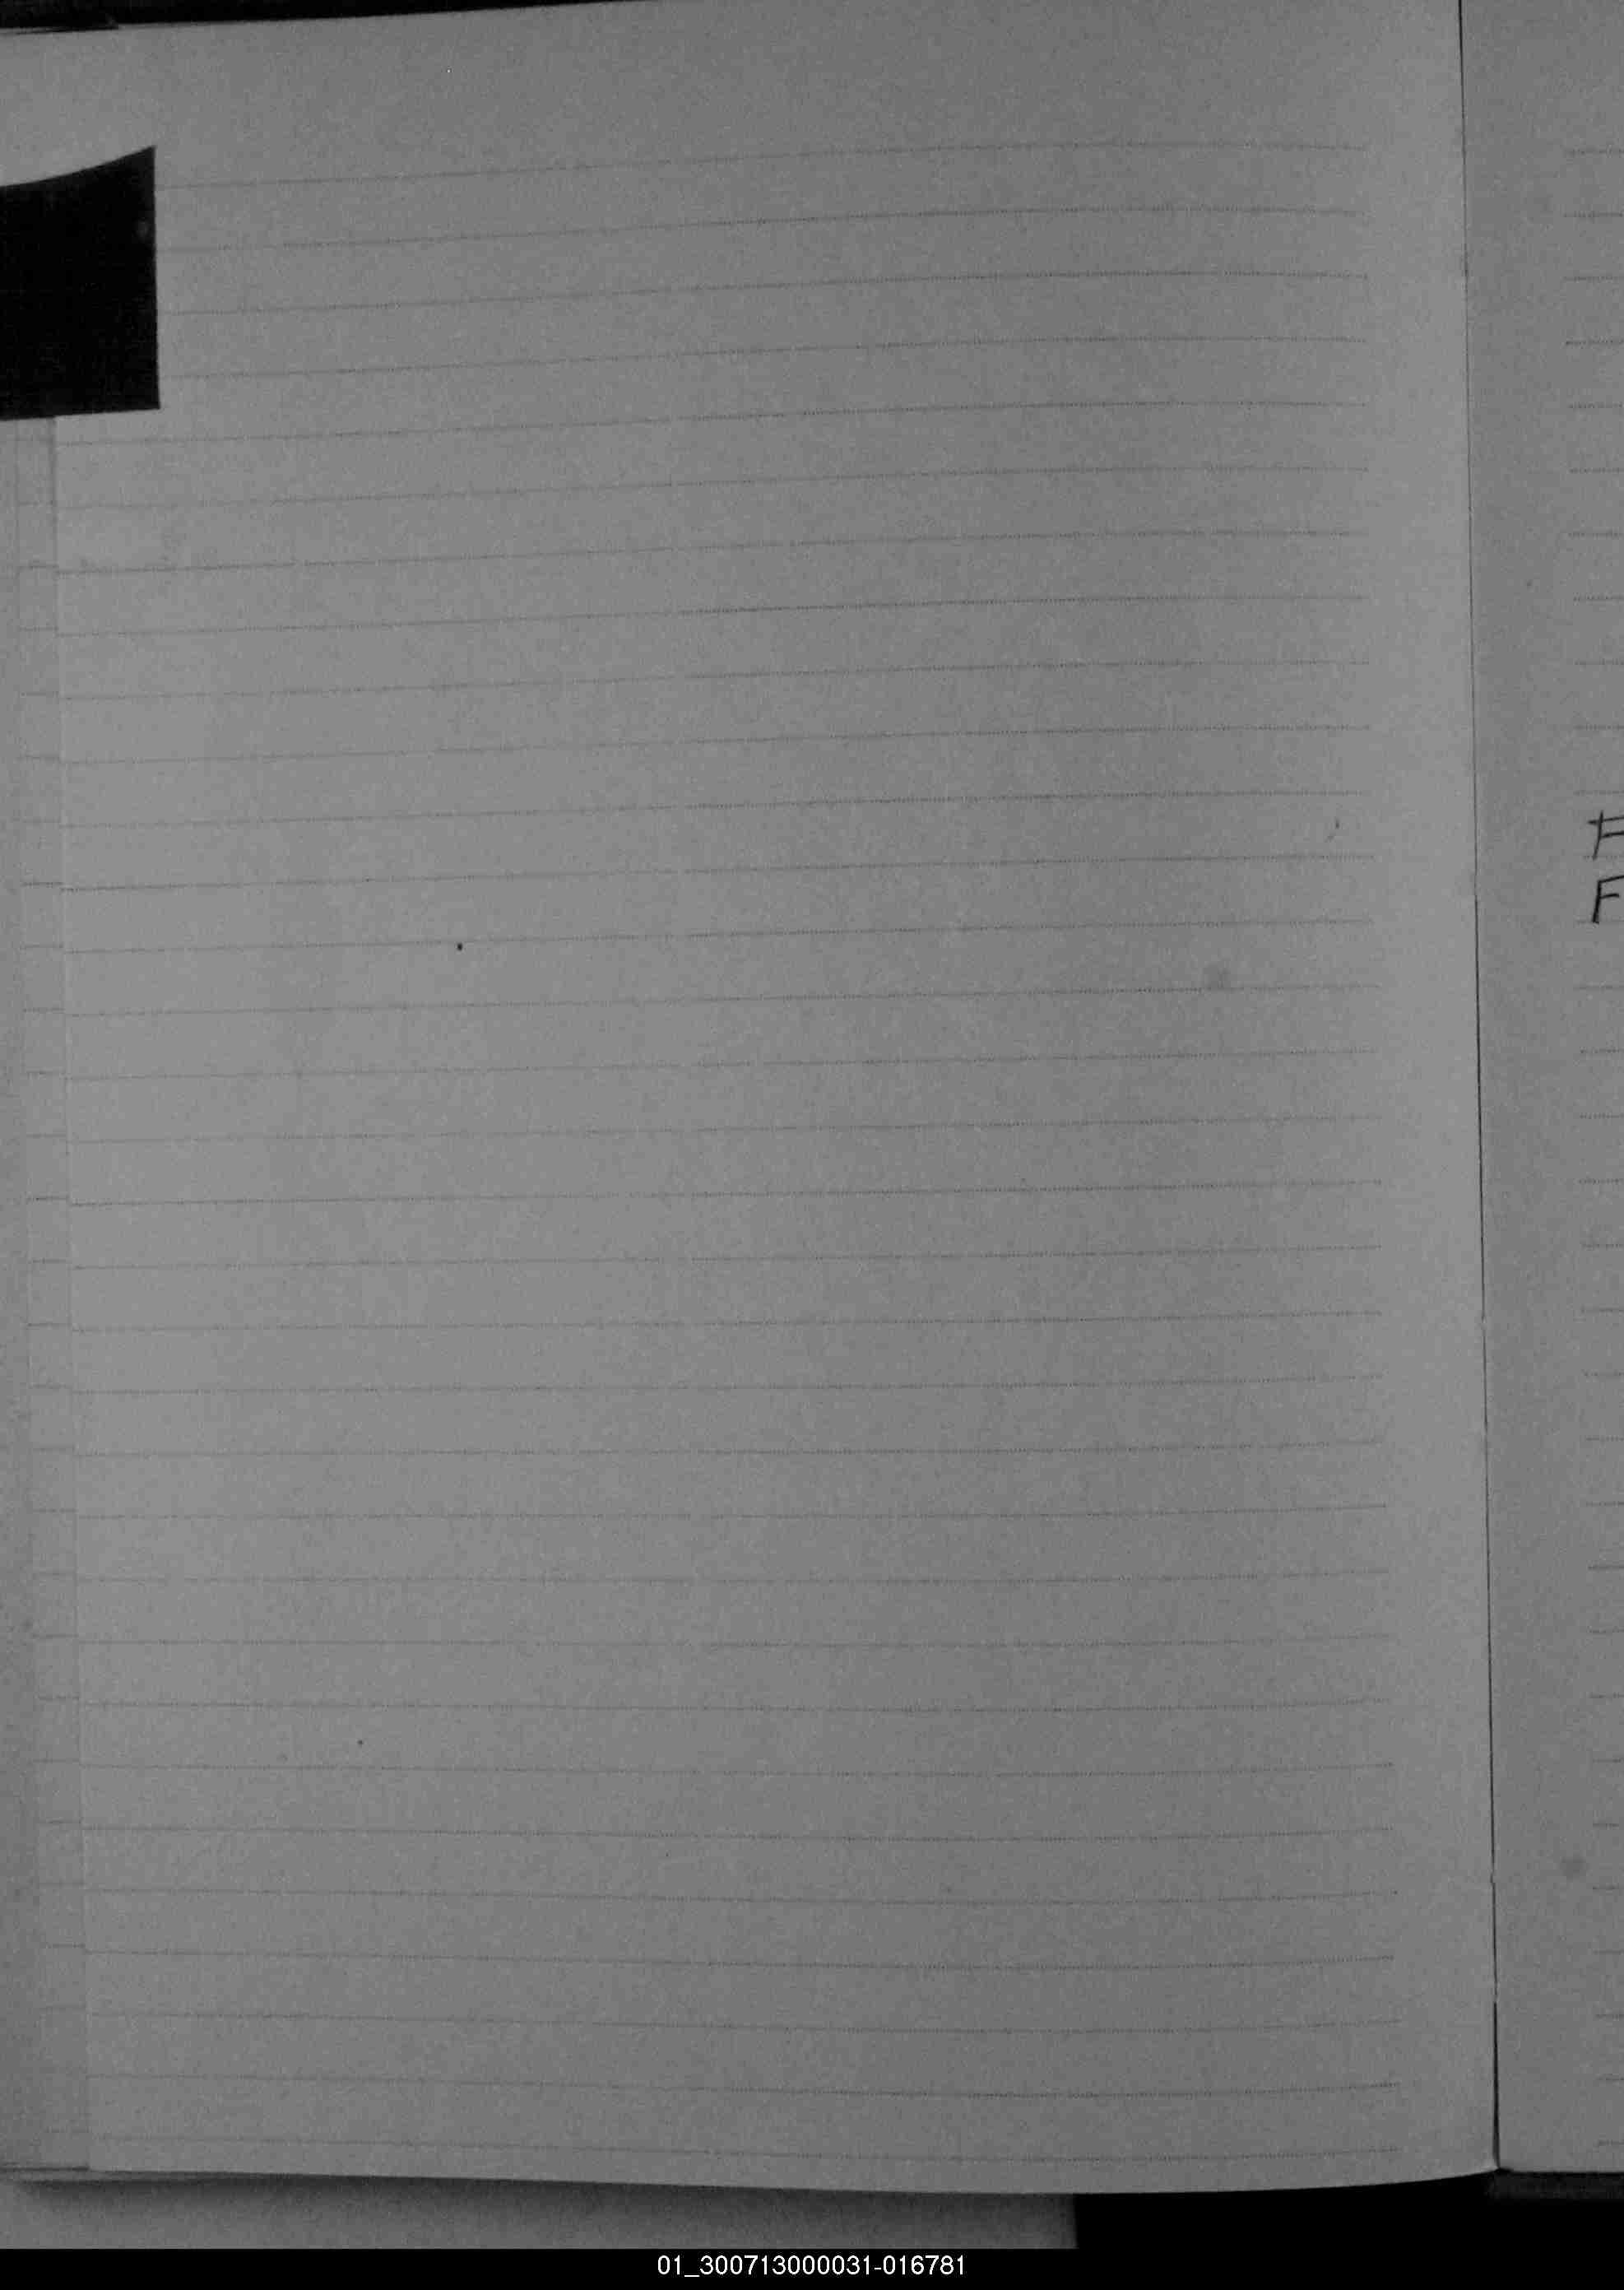 F
F
01_300713000031-016781